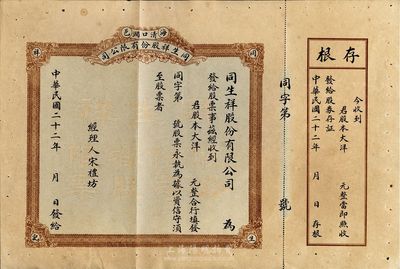 存根
今收到
君股本大洋 元整當即照收
發給股券存証
中華民國二十二年 月 日 存根
同字第 號
同生祥股份有限公司
同
祥
生
記
同生祥股份有限公司 為
發給股票事茲經收到
君股本大洋 元整合行填發
同字第 號股票永執為據以資信守須
至股票者
經理人宋禮坊
中華民國二十二年 月 日發給